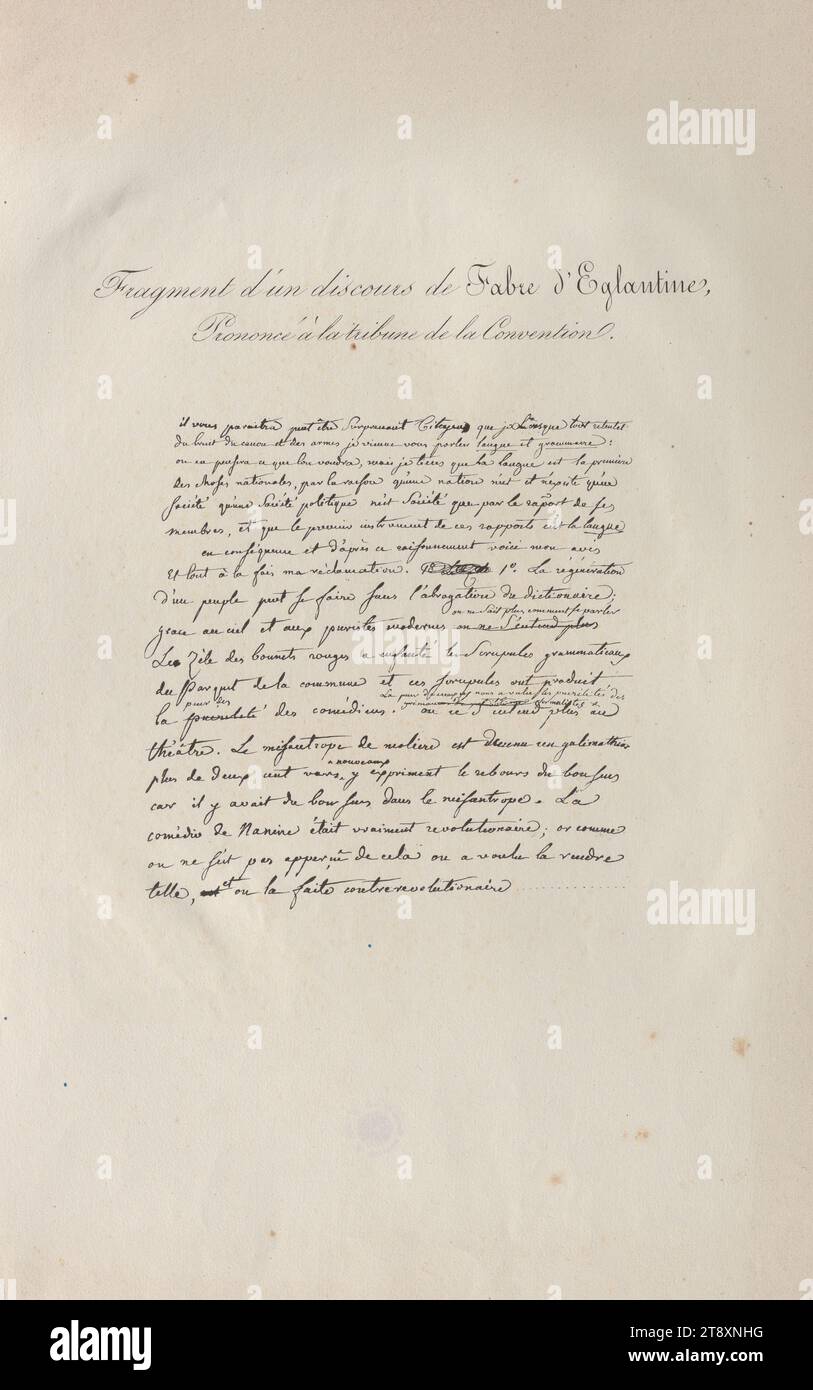 Fragment d'un discours de Fabre d'Eglantine,
Prononcé à la tribune de la Convention.
il vous paraitra peut être surprenant Citoyens que lorsque tout retentit
du bruit du canon et des armes je vienne vous parler langue et grammaire:
on en pensera ce que l'on voudra, mais je tiens que la langue est la première
des choses nationales, par la raison qu'une nation n'est et n'existe qu'en
société qu'une société politique n'est société que par le raport de ses
membres, et que le premier instrument de ces rapports est la langue
en conséquence et d'après ce raisonnement voici mon avis
Et tout à la fois ma réclamation. 1º. La régénération
d'un peuple peut se faire sans l'abrogation du dictionaire;
on ne sait plus comment se parler
grace au ciel et aux puristes modernes on ne s'entend plus
Le Zèle des bonnets rouges a augmenté les scrupules grammaticaux
du Parquet de la commune et ces scrupules ont produit
La peur des nous a valu les puérilités des
peur des
la des comédiens. on ne s'entend plus au
théâtre. Le misantrope de moliere est devenu un galimathias
nouveaux
plus de deux cent vers y expriment le rebours du bon sens
car il y avait du bon sens dans le misantrope. La
comédie de Nanine était vraiment revolutionaire; or comme
on ne s'est pas apperçu de cela on a voulu la rendre
telle, et on la faite contrerevolutionaire ..............
alamy
alamy
Image ID: 2T8XNHG
www.alamy.com